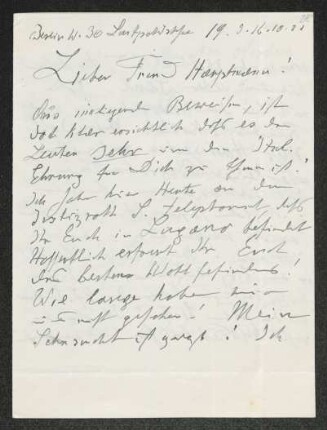 Berlin W. 30 Landshutstrasse 19. 3. 16.10.
Lieber Freund Hauptmann!
Aus inliegenden Beweisen, ist
doch klar ersichtlich daß es den
Leuten sehr um den Ital.
Ehrung für Dich zu thun ist!
Ich habe hier Heute an den
Justizrath S. telephoniert daß
Ihr Euch in Lugano befindet
Hoffentlich erfreut Ihr Euch
des besten Wohlbefindens!
Wie lange haben wir
uns nicht gesehen! Meine
Sehnsucht ist gross! Ich